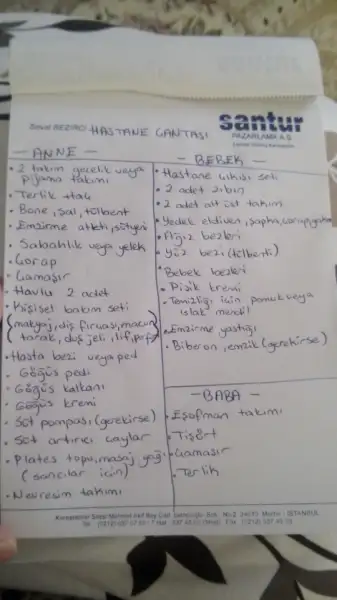 santur
PAZARLAMA A.Ş.
HASTANE ÇANTASI
— ANNE —
• 2 takım gecelik veya
pijama takımı
• Terlik + taç
• Bone, şal, tülbent
• Emzirme atleti, sütyeni
• Sabahlık veya yelek
• Çorap
• Çamaşır
• Havlu 2 adet
• Kişisel bakım seti
(makyaj, diş fırçası, macun
tarak, duş jeli, lif,
• Hasta bezi veya ped
• Göğüs pedi
• Göğüs kalkanı
• Göğüs kremi
• Süt pompası (gerekirse)
• Süt artırıcı çaylar
• Plates topu, masaj yağı
(sancılar için)
• Nevresim takımı
— BEBEK —
• Hastane çıkışı seti
• 2 adet zıbın
• 2 adet alt üst takım
• Yedek eldiven, şapka, çorap,
• Ağız bezleri
• Yüz bezi (tülbenti)
• Bebek bezleri
• Pişik kremi
• Temizliği için pamuk veya
ıslak mendil
• Emzirme yastığı
• Biberon, emzik (gerekirse)
— BABA —
• Eşofman takımı
• Tişört
• Çamaşır
• Terlik